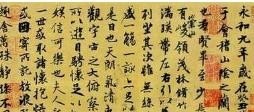 永和九年
會稽山陰之蘭
也羣賢畢至少
有崇山峻領茂林脩
湍暎帶左右
列坐其次雖無
盛一觴一詠
是日也天朗氣清
觀宇宙之大俯察
所以遊目騁懷
娛信可樂也夫
一世或取諸懷抱
或因寄所託放
舍萬殊靜躁不